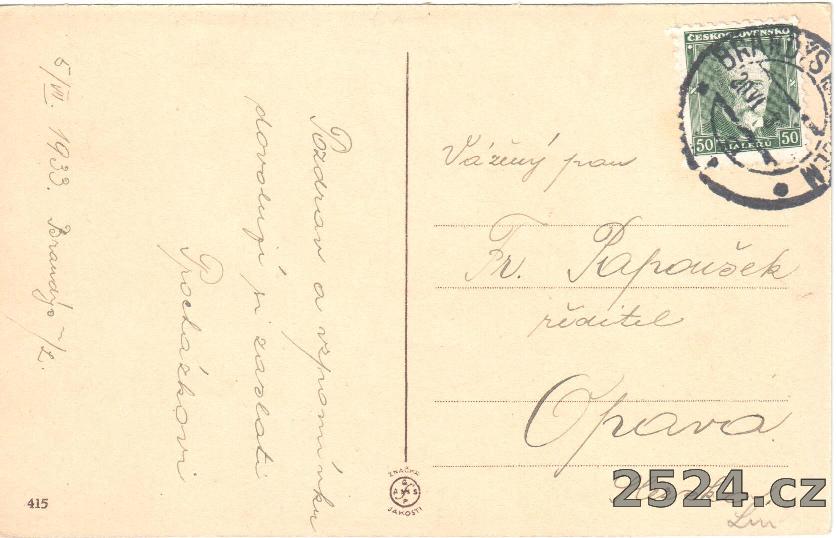 5/VII. 1933. Brandýs n/L.
Pozdrav a vzpomínku
dovolují si zaslati
Procházkovi
415
ZNAČKA
JAKOSTI
ČESKOSLOVENSKO
50 HALÉŘŮ 50
BRANDÝS
Vážený pan
Fr. Papoušek
ředitel
Opava
2524.cz